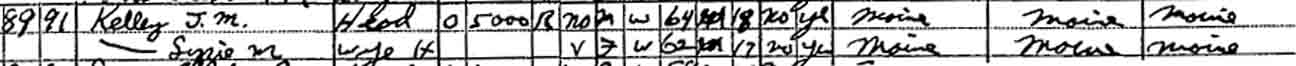 89 91 Kelley J. M. Head O 5000 R no M W 64 M 18 no yes Maine Maine Maine
— Lizzie M Wife H V F W 62 M 17 no yes Maine Maine Maine